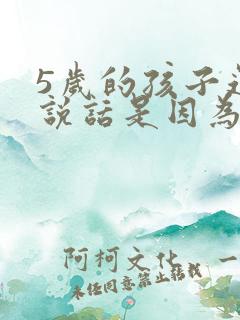 5歲的孩子
說話是因為
阿柯文化 一
未经同意禁止转载